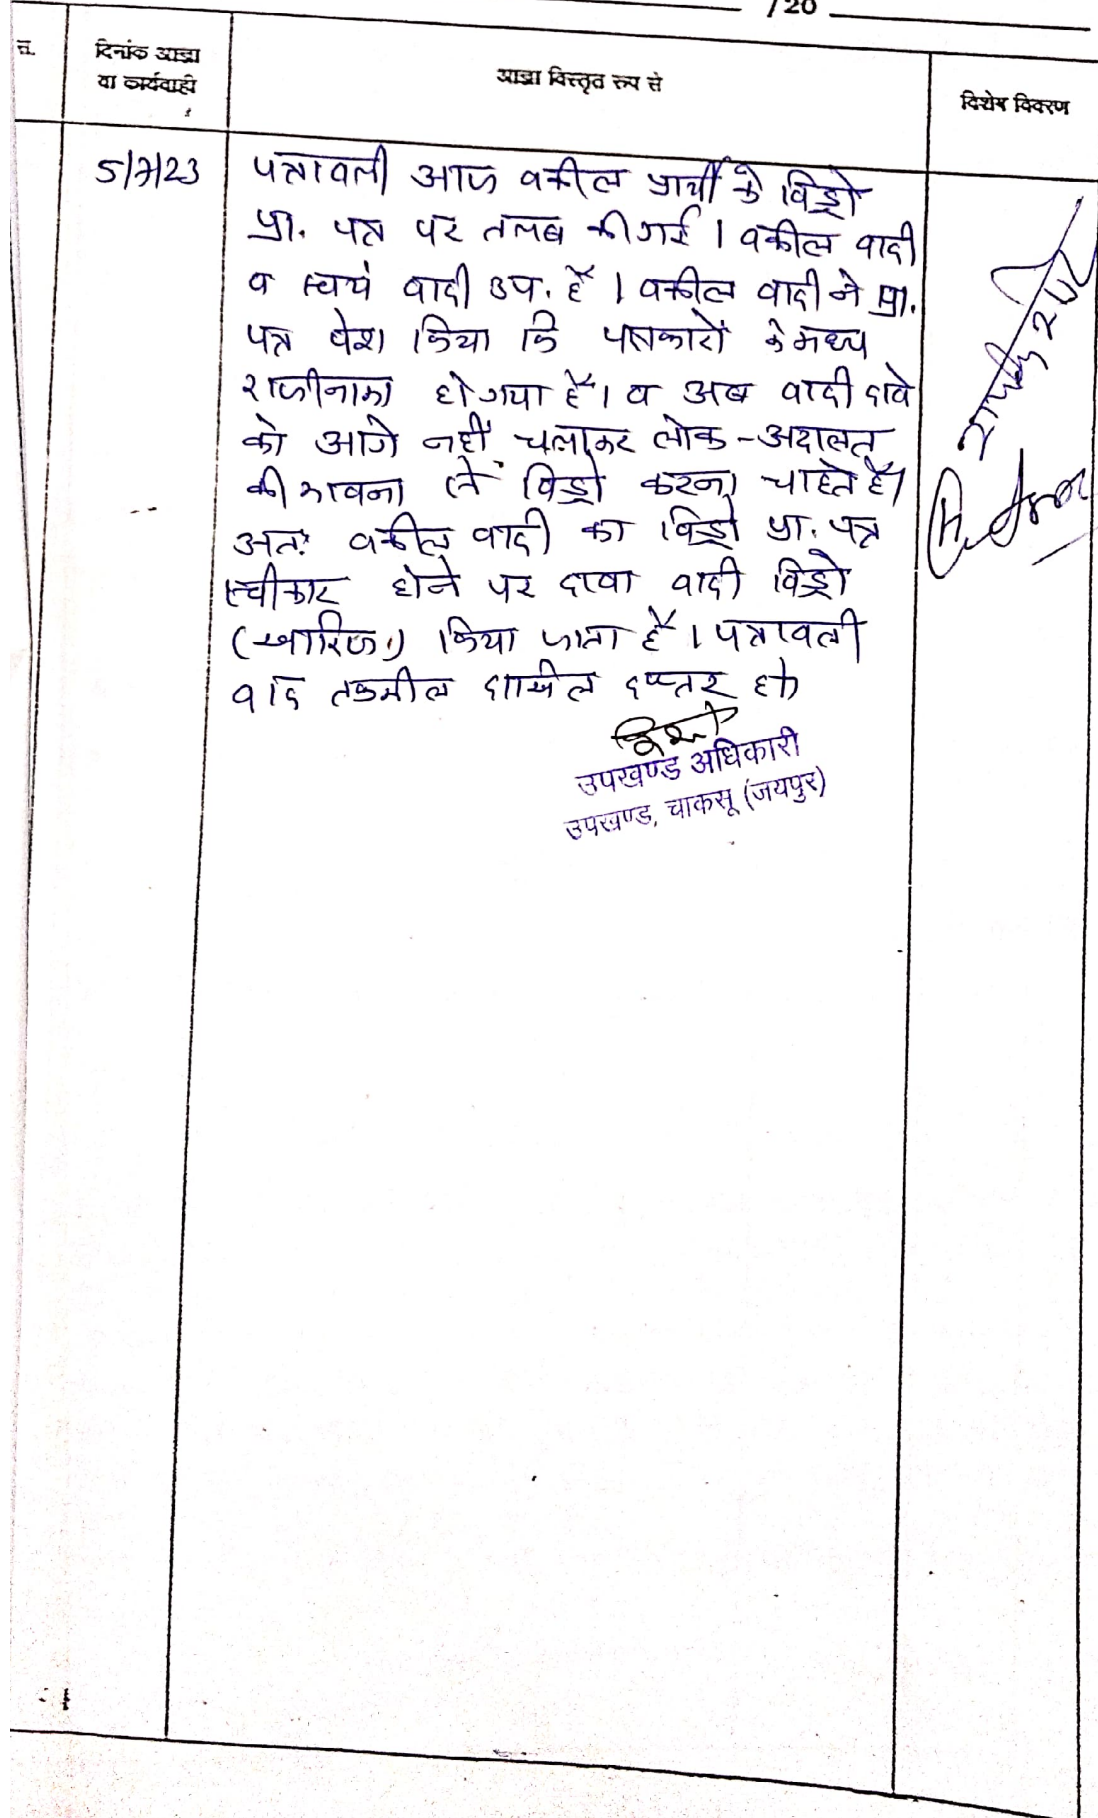 /20
सं.
दिनांक आज्ञा
या कार्यवाही
आज्ञा विस्तृत रुप से
विशेष विवरण
5/7/23
पत्रावली आज वकील प्रार्थी के विड्रो
प्रा. पत्र पर तलब की गई । वकील वादी
व स्वयं वादी उप. है । वकील वादी ने प्रा.
पत्र पेश किया कि पक्षकारों के मध्य
राजीनामा हो गया है । व अब वादी दावे
को आगे नहीं चलाकर लोक-अदालत
की भावना से विड्रो करना चाहते है।
अतः वकील वादी का विड्रो प्रा. पत्र
स्वीकार होने पर दावा वादी विड्रो
(खारिज) किया जाता है । पत्रावली
बाद तकमील दाखिल दफ्तर हो
उपखण्ड अधिकारी
उपखण्ड, चाकसू (जयपुर)